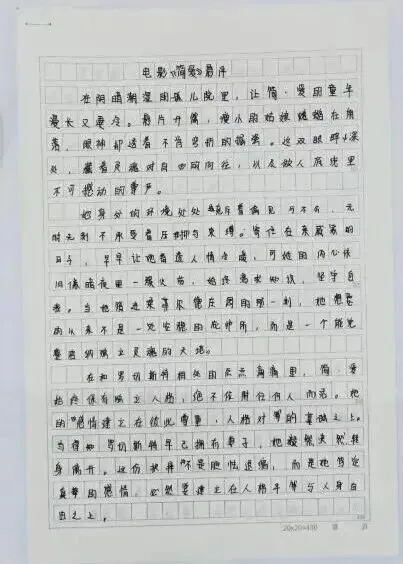 电影《简爱》影评
在阴暗潮湿的孤儿院里，让简·爱的童年
漫长又寒冷。影片开篇，瘦小的姑娘蜷缩在角
落，眼神却透着不肯弯折的倔强。这双眼眸深
处，藏着灵魂对自由的向往，以及做人底线里
不可撼动的尊严。
她身处的环境处处充斥着偏见与不公，无
时无刻不承受着压抑与束缚。寄住在亲戚家的
日子，早早让她看透人情冷暖，可她的内心依
旧像暗夜里一簇火苗，始终渴求知识，坚守自
我。当她踏进桑菲尔德庄园的那一刻，她想要
的从来不是一处安稳的庇护所，而是一个能完
整容纳独立灵魂的天地。
在和罗切斯特相处的点点滴滴里，简·爱
始终保有独立人格，绝不依附任何人而活。她
的感情建立在彼此尊重，人格对等的基础之上。
当得知罗切斯特早已拥有妻子，她毅然决然转
身离开。这份抉择不是胆怯退缩，而是她笃定
真挚的感情，必然要建立在人格平等与人身自
由之上。
20x20=400